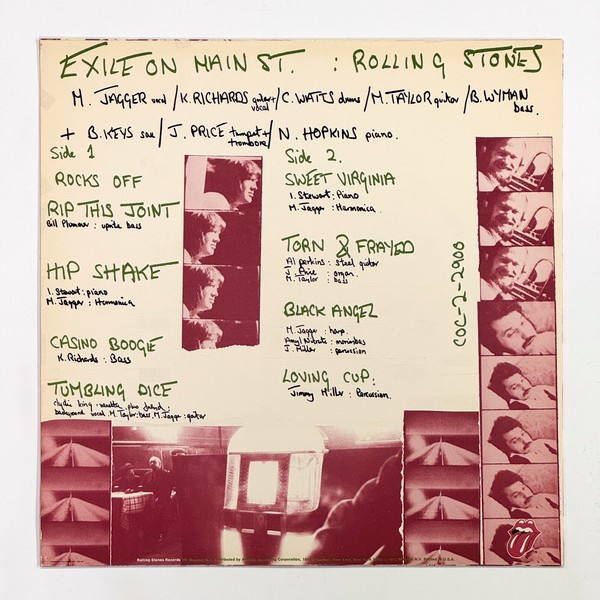 EXILE ON MAIN ST. : ROLLING STONES
M. JAGGER vocal / K. RICHARDS guitar + vocal / C. WATTS drums / M. TAYLOR guitar / B. WYMAN bass.
+ B. KEYS sax / J. PRICE trumpet + trombone / N. HOPKINS piano.
Side 1
ROCKS OFF
RIP THIS JOINT
Bill Plummer : uprite bass
HIP SHAKE
I. Stewart : piano
M. Jagger : Harmonica
CASINO BOOGIE
K. Richards : Bass
TUMBLING DICE
clydie king . vanetta plus friend :
background vocal. M. Taylor : bass. M. Jagger : guitar
Side 2.
SWEET VIRGINIA
I. Stewart : Piano
M. Jagger : Harmonica
TORN & FRAYED
Al perkins : steel guitar
J. Price : organ.
M. Taylor : bass
BLACK ANGEL
M. Jagger : harp.
Amyl Nitrate : marimbas
J. Miller : percussion
LOVING CUP :
Jimmy Miller : Percussion.
COC-2-2900
Rolling Stones Records